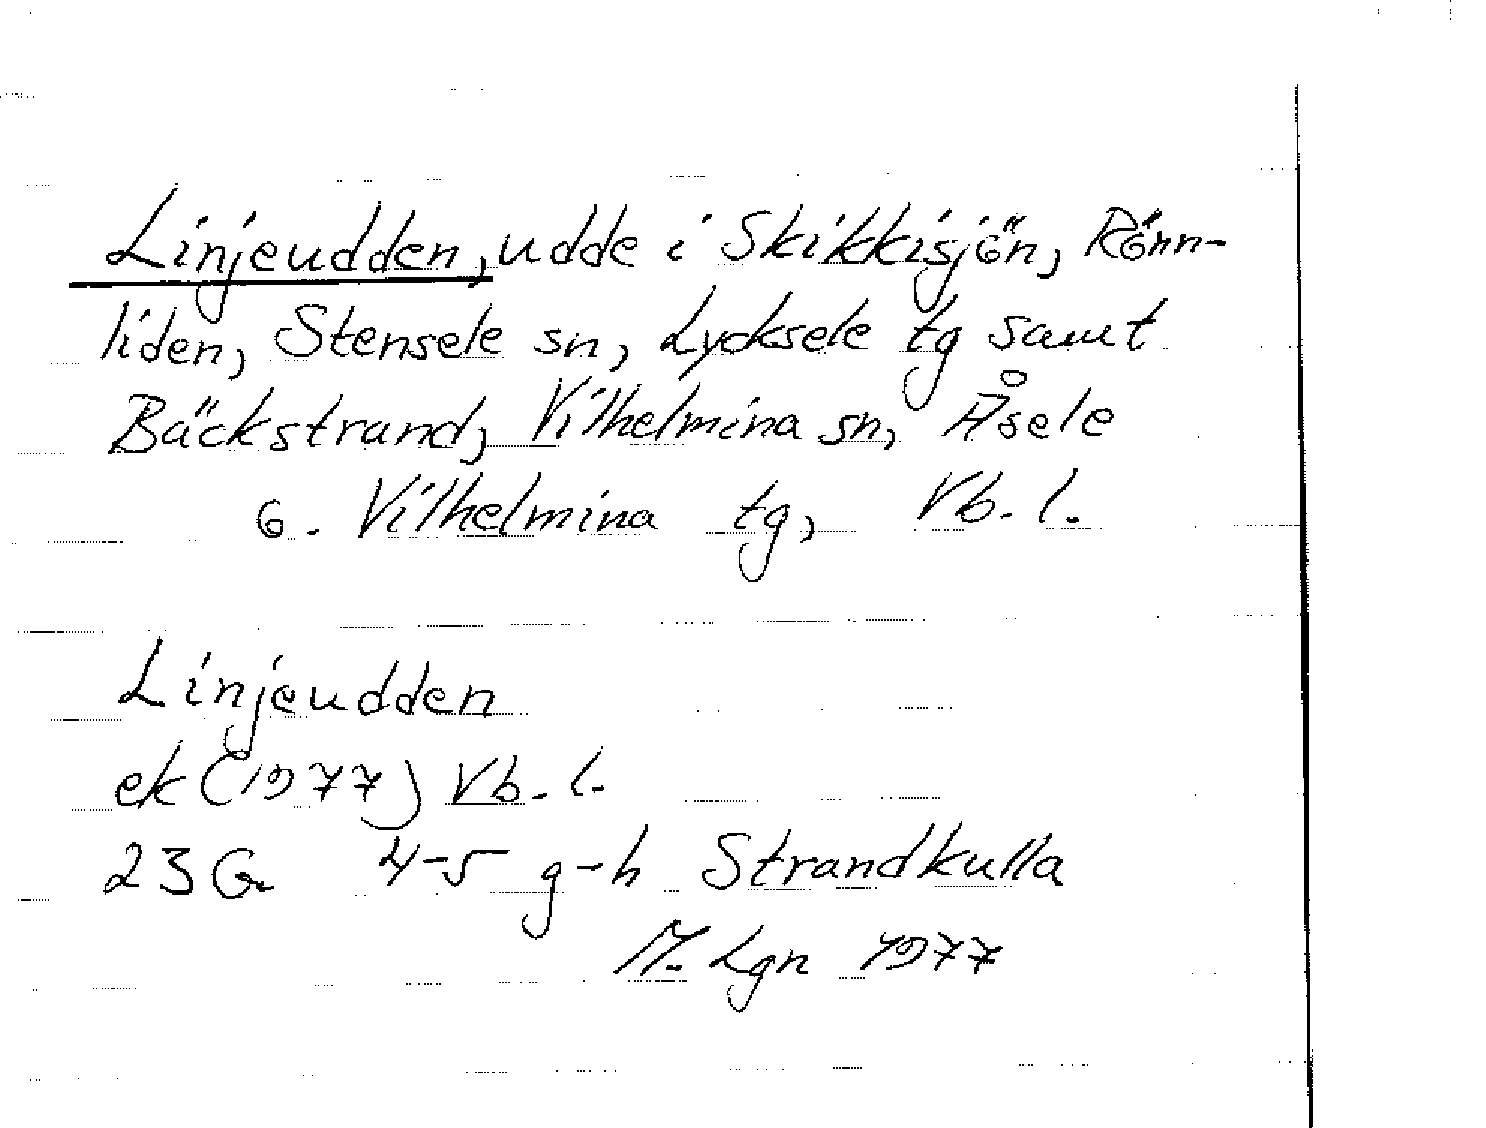 Linjeudden, udde i Skikkisjön, Rönn-
liden, Stensele sn, Lycksele tg samt
Bäckstrand, Vilhelmina sn, Åsele
o. Vilhelmina tg, Vb. l.
Linjeudden
ek (1977) Vb. l.
23 G 4-5 g-h Strandkulla
M. Lgn 1977